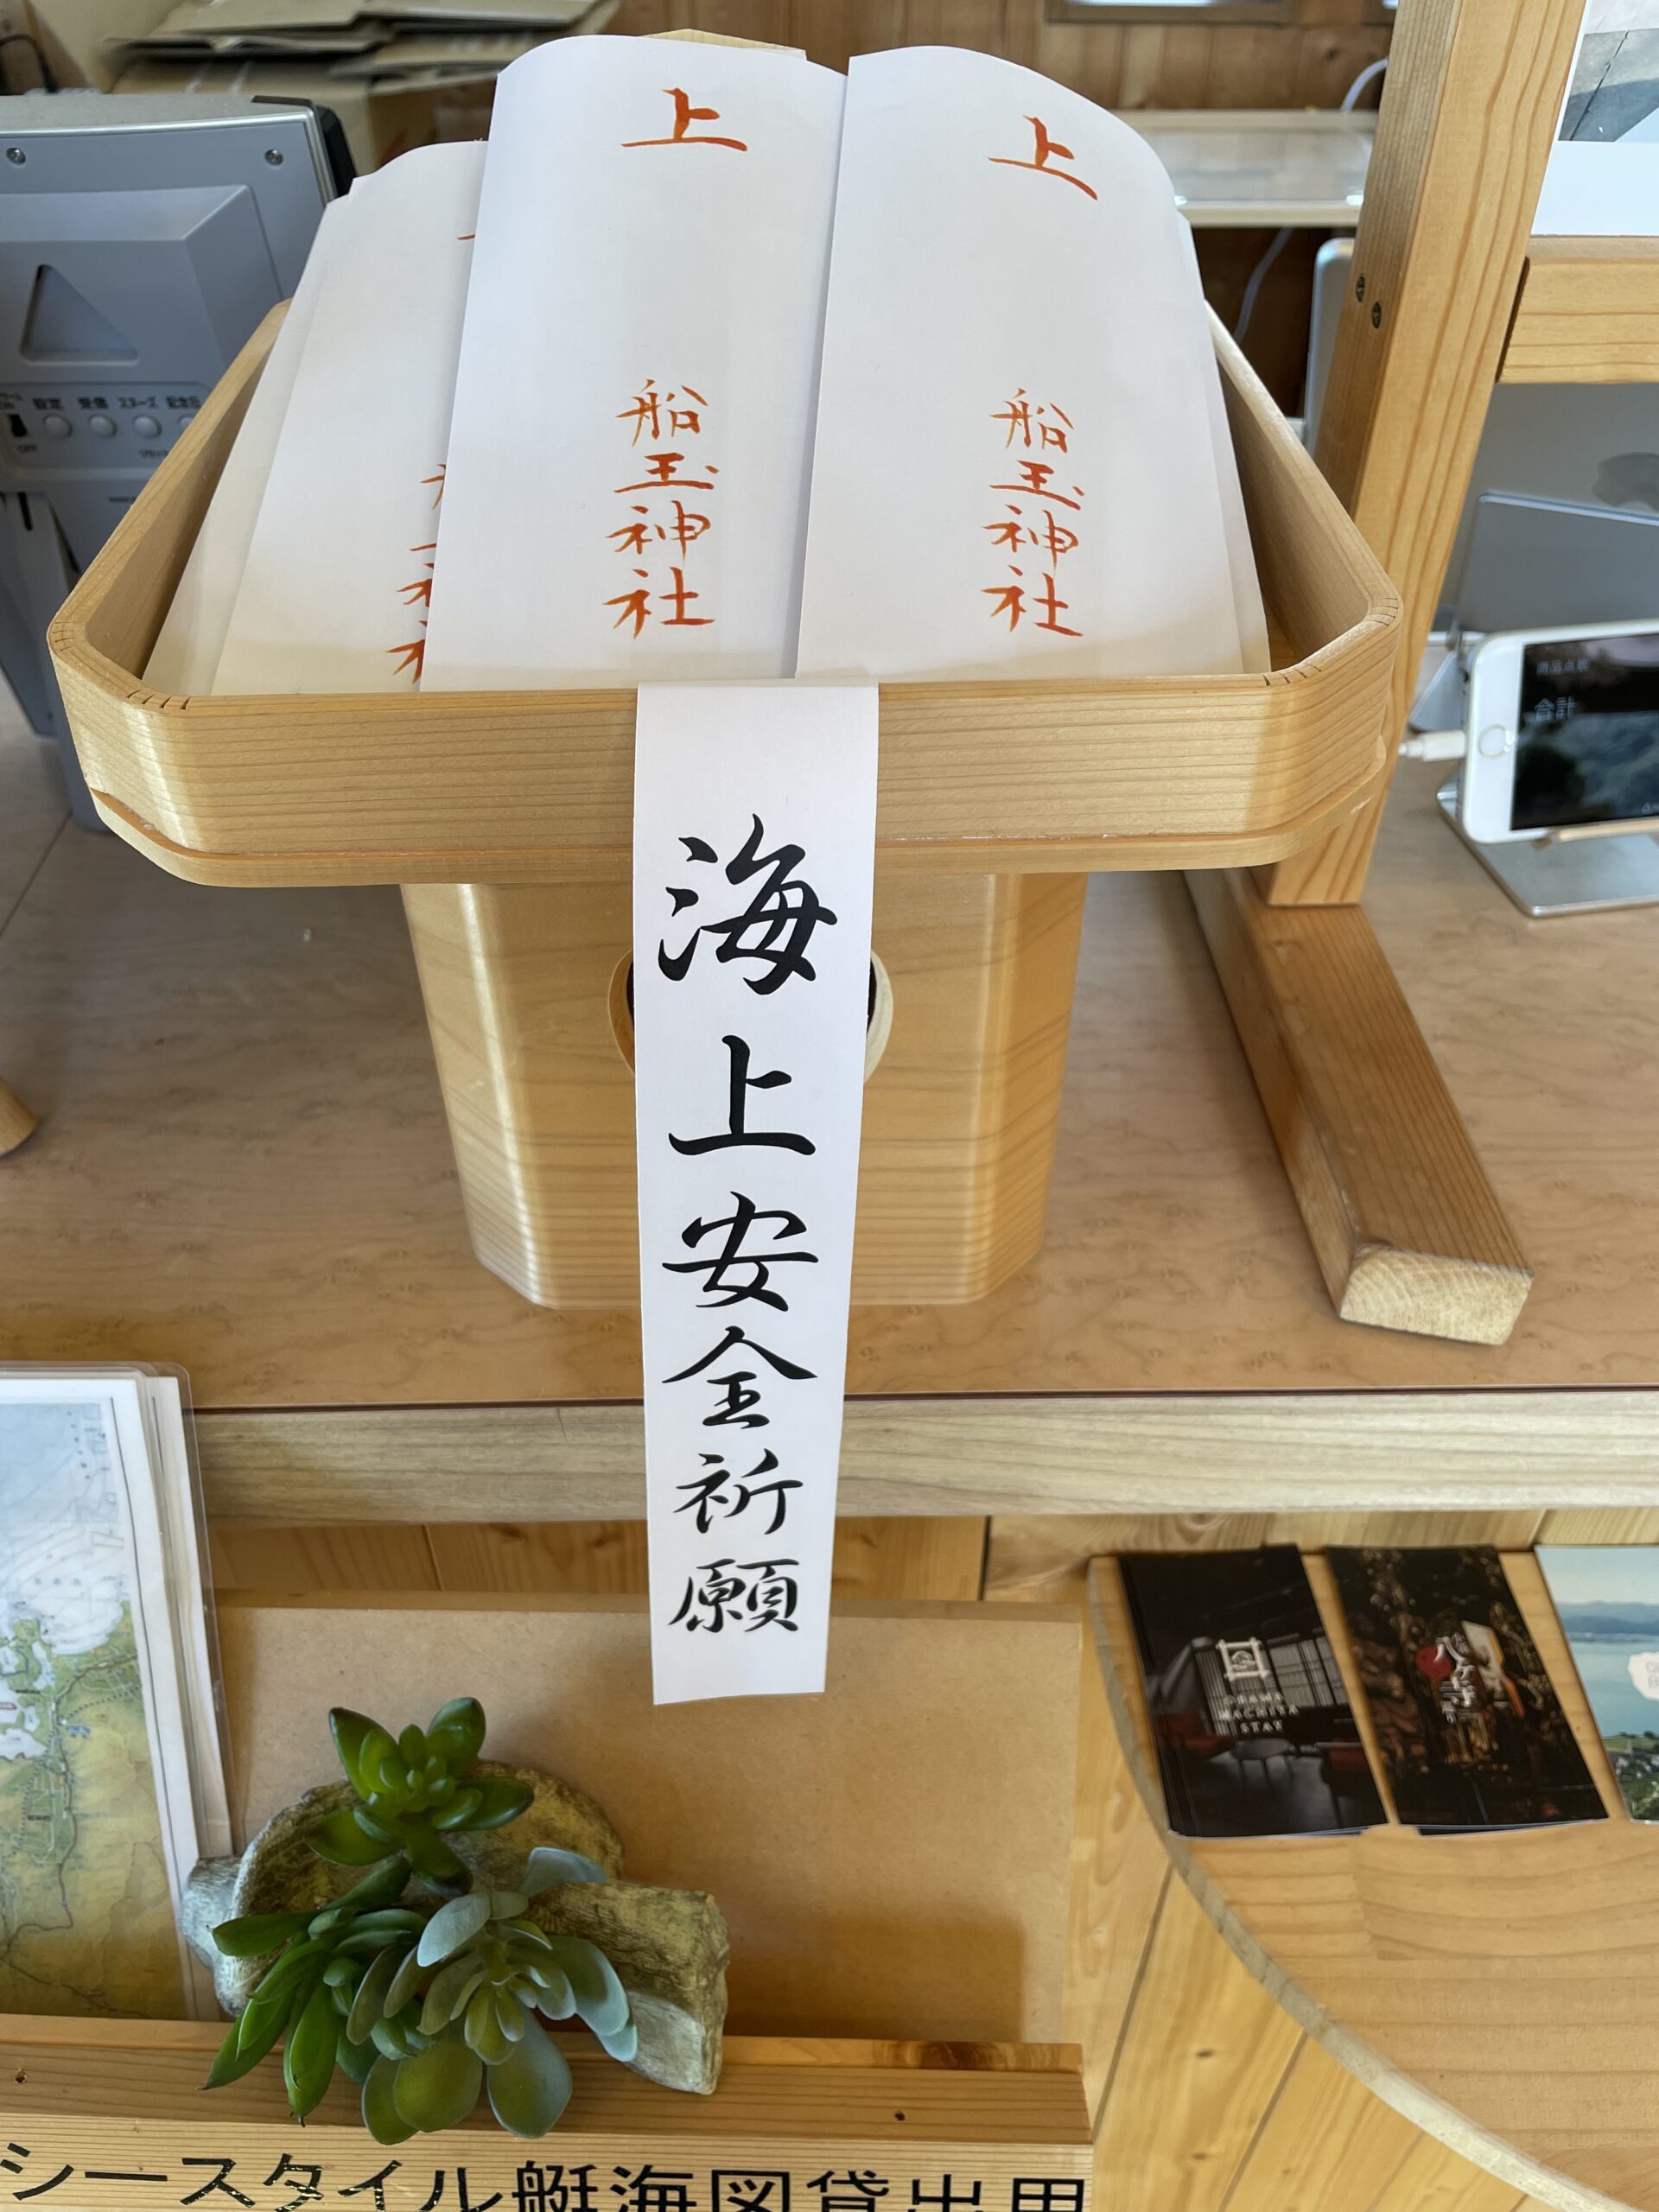 上
船玉神社
上
船玉神社
海上安全祈願
設定 受信 スヌーズ
OFF
合計
OBAMA
MACHIYA
STAY
八ヶ寺
シースタイル艇海図貸出用